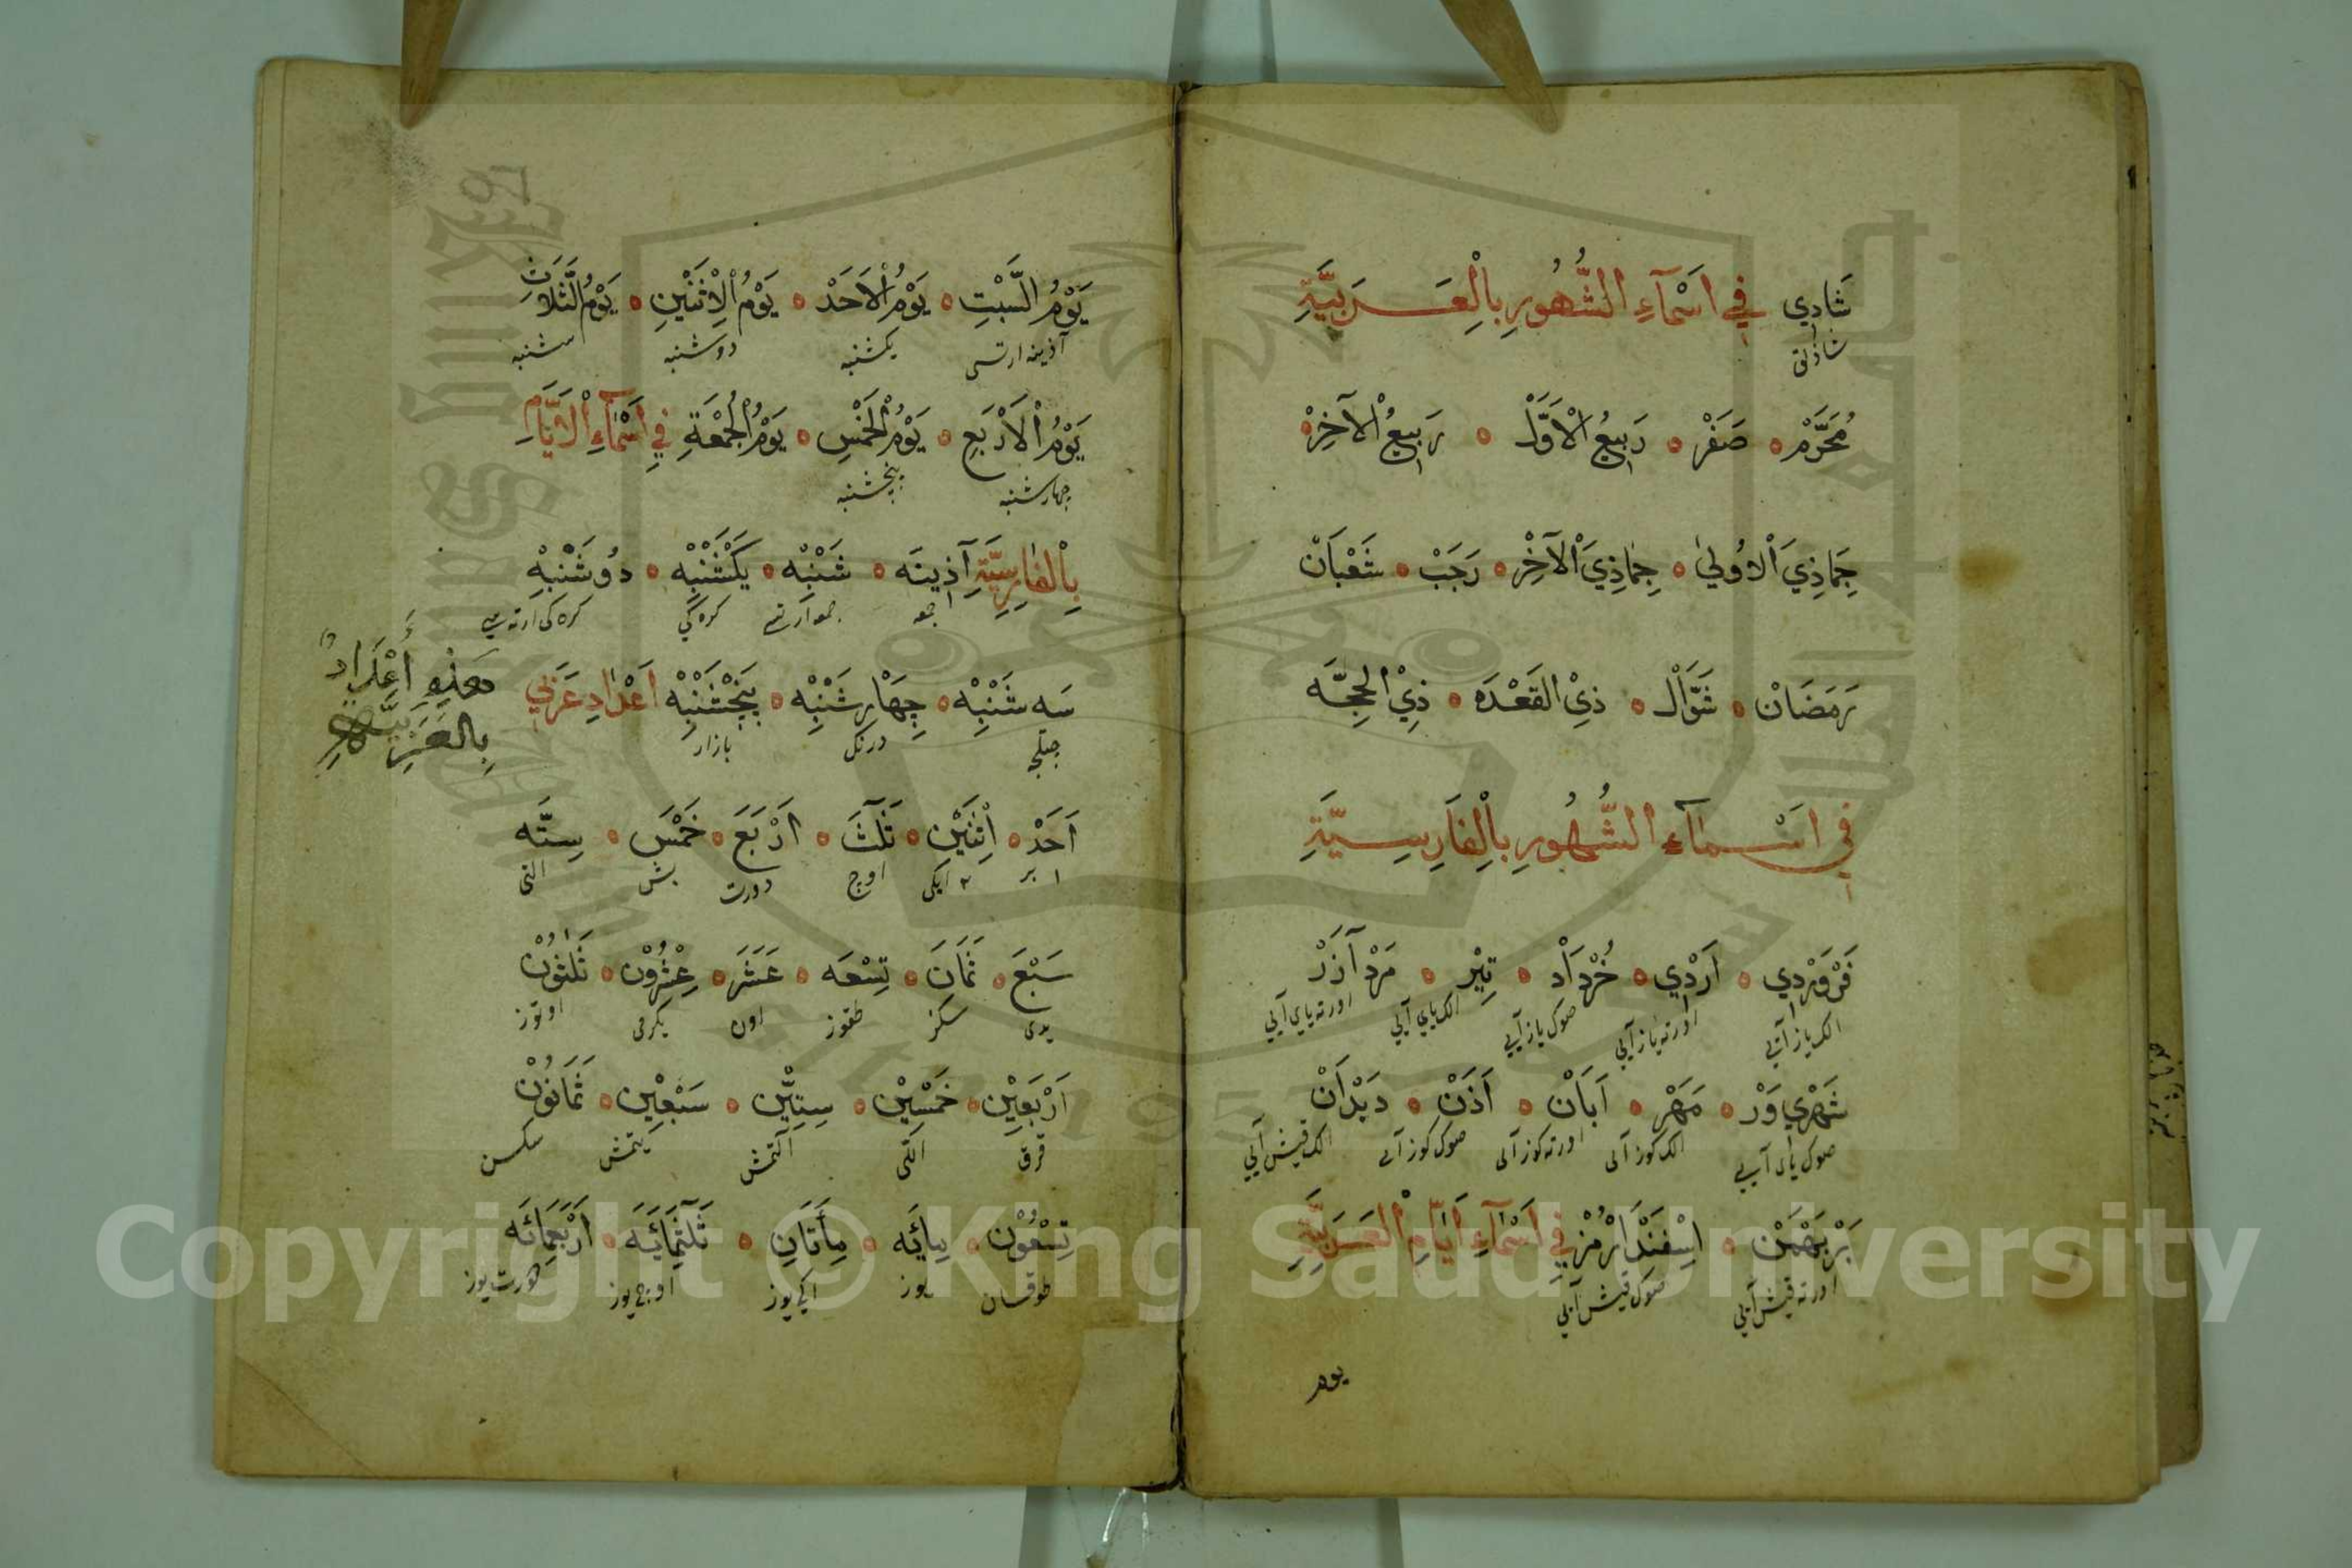 شَادِي فِي اَسْمَآءِ الشُّهُورِ بِالْعَرَبِيَّةِ
شاذلق
مُحَرَّمْ صَفَرْ رَبِيعُ الْاَوَّلْ رَبِيعُ الْآخِرْ
جَمَاذِيَ الْاُولٰي جَمَاذِيَ الْآخِرْ رَجَبْ شَعْبَانْ
رَمَضَانْ شَوَّالْ ذِيْ القَعْدَه ذِيْ الحِجَّه
فِي اَسْمَاءِ الشُّهُورِ بِالْفَارِسِيَّةِ
فَرْوَرْدِي اَرْدِي خُرْدَادْ تِيْر مَرْدْ آذَرْ
الك ياز آيي اورته ياز آيي صوك ياز آيي الك ياي آيي اورته ياي آيي
شَهْرِي وَرْ مَهْر اَبَانْ اَذَنْ دَيْدَانْ
صوك ياى آيى الك كوز آى اورته كوز آى صوك كوز آى الك قيش آيي
بَرْبَهْمَنْ اِسْفَنْدَارْمُزْ فِي اَسْمَآءِ اَيَّامِ الْعَرَبِيَّةِ
اورته قيش آيي صوك قيش آيي
يوم
يَوْمُ السَّبْتِ يَوْمُ الْاَحَدْ يَوْمُ الْاِثْنَيْنِ يَوْمُ الثَّلَاثِ
آذينه ارتسى يكشنبه دوشنبه سشنبه
يَوْمُ الْاَرْبَعِ يَوْمُ الْخَمْسِ يَوْمُ الْجُمْعَةِ فِي اَسْمَآءِ الْاَيَّامِ
چهارشنبه پنجشنبه
بِالْفَارِسِيَّةِ آذِينَه شَنْبِه يَكْشَنْبِه دُوشَنْبِه
جمعه ارتسى كره كى كره كى ارته سي
سَه شَنْبِه چِهَارشَنْبِه پَنْجْشَنْبِه اَعْدَادِ عَرَبِي
درنك بازار
هذه أَعْدَادٌ
بالعَرَبِيَّةِ
اَحَدْ اِثْنَيْن ثَلٰثَ اَرْبَعَ خَمْسَ سِتَّه
١ بر ٢ ايكى اوچ دورت بش التى
سَبْعَ ثَمَانَ تِسْعَه عَشَرَ عِشْرُونْ ثَلٰثُونْ
يدى سكز طقوز اون يكرمى اوتوز
اَرْبَعِيْن خَمْسِيْن سِتِّيْن سَبْعِيْن ثَمَانُونْ
قرق اللى التمش يتمش سكسن
تِسْعُوْن مِائَه مِأَتَانِ ثَلٰثُمِائَيَه اَرْبَعِمِائَه
طوقسان يوز ايكى يوز اوچ يوز دورت يوز
Copyright © King Saud University